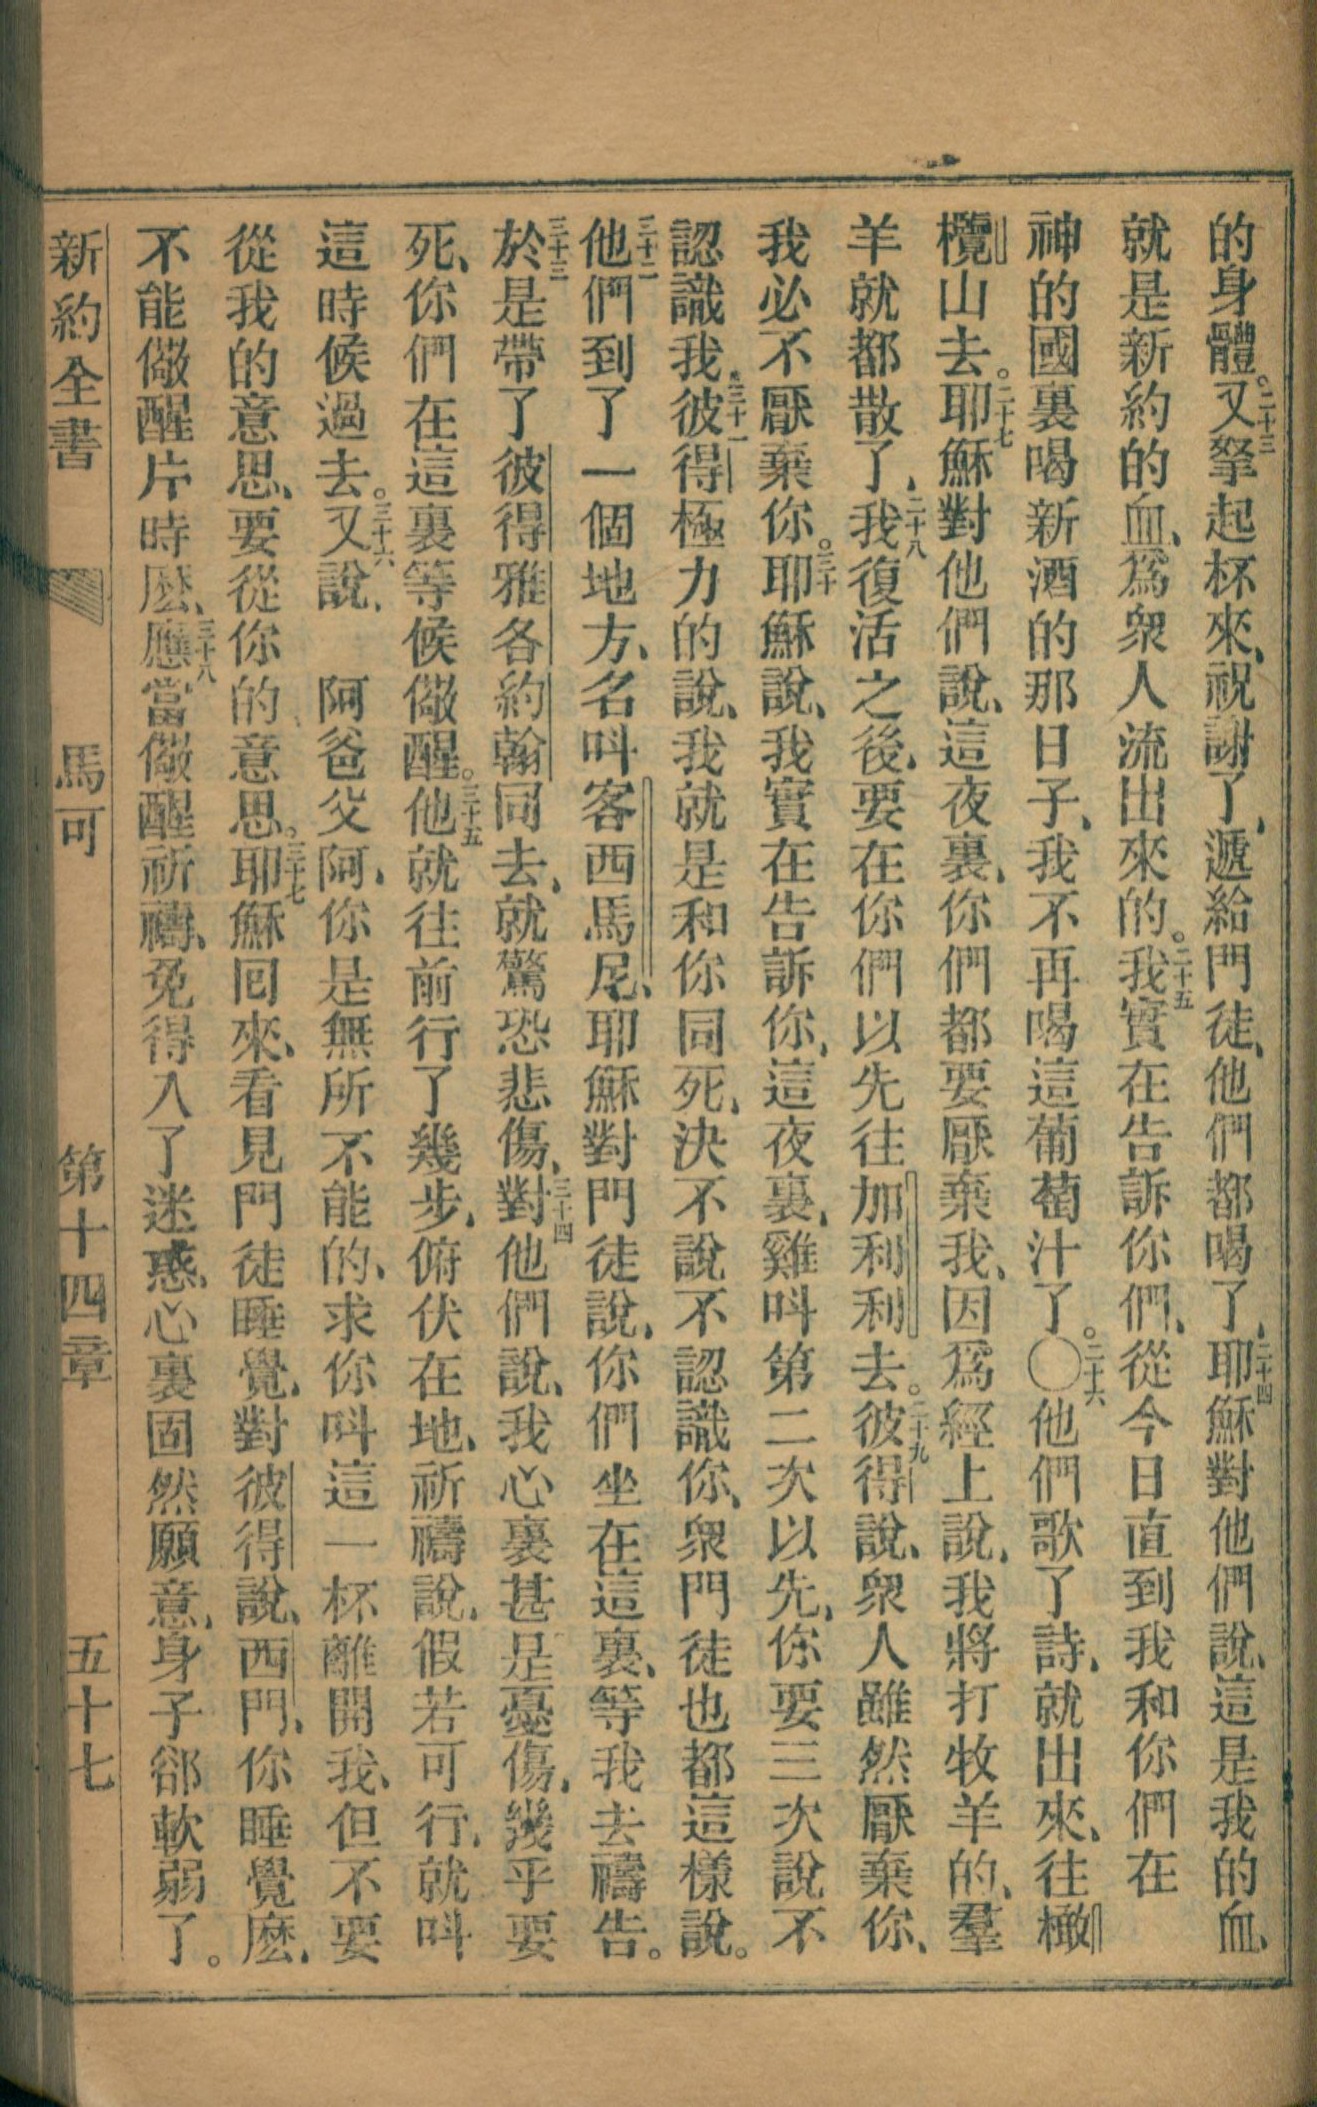 的身體。二十三又拏起杯來、祝謝了、遞給門徒、他們都喝了、二十四耶穌對他們說、這是我的血、
就是新約的血、爲衆人流出來的。二十五我實在告訴你們、從今日直到我和你們在
神的國裏喝新酒的那日子、我不再喝這葡萄汁了。〇二十六他們歌了詩、就出來、往橄
欖山去。二十七耶穌對他們說、這夜裏、你們都要厭棄我、因爲經上說、我將打牧羊的、羣
羊就都散了、二十八我復活之後、要在你們以先往加利利去。二十九彼得說、衆人雖然厭棄你、
我必不厭棄你。三十耶穌說、我實在告訴你、這夜裏、雞呌第二次以先、你要三次說不
認識我。三十一彼得極力的說、我就是和你同死、決不說不認識你、衆門徒也都這樣說。
三十二他們到了一個地方、名呌客西馬尼、耶穌對門徒說、你們坐在這裏、等我去禱告。
三十三於是帶了彼得雅各約翰同去、就驚恐悲傷、三十四對他們說、我心裏甚是憂傷、幾乎要
死、你們在這裏等候儆醒。三十五他就往前行了幾步、俯伏在地、祈禱說、假若可行、就呌
這時候過去。三十六又說、 阿爸父阿、你是無所不能的、求你呌這一杯離開我、但不要
從我的意思、要從你的意思。三十七耶穌囘來、看見門徒睡覺、對彼得說、西門、你睡覺麽、
不能儆醒片時麽、三十八應當儆醒祈禱、免得入了迷惑、心裏固然願意、身子郤軟弱了。
新約全書 馬可 第十四章 五十七